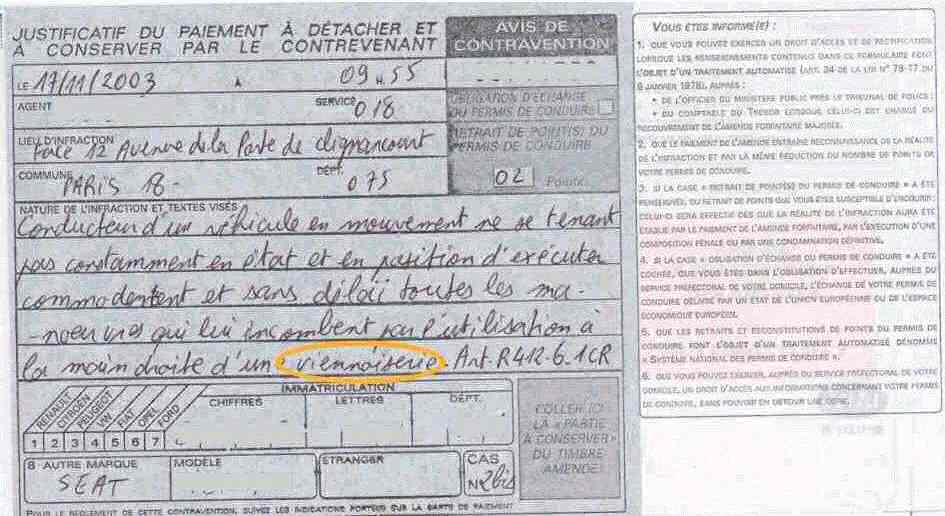 JUSTIFICATIF DU PAIEMENT À DÉTACHER ET
À CONSERVER PAR LE CONTREVENANT
AVIS DE
CONTRAVENTION
LE 17/11/2003 À 09 H 55
AGENT
SERVICE 018
OBLIGATION D'ÉCHANGE
DU PERMIS DE CONDUIRE
LIEU D'INFRACTION
Face 12 Avenue de la Porte de clignancourt
RETRAIT DE POINT(S) DU
PERMIS DE CONDUIRE
COMMUNE PARIS 18-
DÉPT. 075
02 Points
NATURE DE L'INFRACTION ET TEXTES VISÉS
Conducteur d'un véhicule en mouvement ne se tenant
pas constamment en état et en position d'exécuter
commodement et sans délai toutes les ma-
-noeuvres qui lui incombent par l'utilisation à
la main droite d'un viennoiserie. Art. R 412-6. 1 CR
IMMATRICULATION
RENAULT
CITROËN
PEUGEOT
VW
FIAT
OPEL
FORD
CHIFFRES
LETTRES
DÉPT.
1 2 3 4 5 6 7
COLLER ICI
LA « PARTIE
À CONSERVER »
DU TIMBRE
AMENDE
8 AUTRE MARQUE
SEAT
MODÈLE
ÉTRANGER
CAS
N° 2bis
POUR LE RÈGLEMENT DE CETTE CONTRAVENTION, SUIVEZ LES INDICATIONS PORTÉES SUR LA CARTE DE PAIEMENT
VOUS ÊTES INFORMÉ(E) :
1. QUE VOUS POUVEZ EXERCER UN DROIT D'ACCÈS ET DE RECTIFICATION
LORSQUE LES RENSEIGNEMENTS CONTENUS DANS CE FORMULAIRE FONT
L'OBJET D'UN TRAITEMENT AUTOMATISÉ (ART. 34 DE LA LOI N° 78-17 DU
6 JANVIER 1978), AUPRÈS :
• DE L'OFFICIER DU MINISTÈRE PUBLIC PRÈS LE TRIBUNAL DE POLICE ;
• DU COMPTABLE DU TRÉSOR LORSQUE CELUI-CI EST CHARGÉ DU
RECOUVREMENT DE L'AMENDE FORFAITAIRE MAJORÉE.
2. QUE LE PAIEMENT DE L'AMENDE ENTRAÎNE RECONNAISSANCE DE LA RÉALITÉ
DE L'INFRACTION ET PAR LA MÊME RÉDUCTION DU NOMBRE DE POINTS DE
VOTRE PERMIS DE CONDUIRE.
3. SI LA CASE « RETRAIT DE POINT(S) DU PERMIS DE CONDUIRE » A ÉTÉ
RENSEIGNÉE, DU RETRAIT DE POINTS QUE VOUS ÊTES SUSCEPTIBLE D'ENCOURIR :
CELUI-CI SERA EFFECTIF DÈS QUE LA RÉALITÉ DE L'INFRACTION AURA ÉTÉ
ÉTABLIE PAR LE PAIEMENT DE L'AMENDE FORFAITAIRE, PAR L'EXÉCUTION D'UNE
COMPOSITION PÉNALE OU PAR UNE CONDAMNATION DÉFINITIVE.
4. SI LA CASE « OBLIGATION D'ÉCHANGE DU PERMIS DE CONDUIRE » A ÉTÉ
COCHÉE, QUE VOUS ÊTES DANS L'OBLIGATION D'EFFECTUER, AUPRÈS DU
SERVICE PRÉFECTORAL DE VOTRE DOMICILE, L'ÉCHANGE DE VOTRE PERMIS DE
CONDUIRE DÉLIVRÉ PAR UN ÉTAT DE L'UNION EUROPÉENNE OU DE L'ESPACE
ÉCONOMIQUE EUROPÉEN.
5. QUE LES RETRAITS ET RECONSTITUTIONS DE POINTS DU PERMIS DE
CONDUIRE FONT L'OBJET D'UN TRAITEMENT AUTOMATISÉ DÉNOMMÉ
« SYSTÈME NATIONAL DES PERMIS DE CONDUIRE ».
6. QUE VOUS POUVEZ EXERCER, AUPRÈS DU SERVICE PRÉFECTORAL DE VOTRE
DOMICILE, UN DROIT D'ACCÈS AUX INFORMATIONS CONCERNANT VOTRE PERMIS
DE CONDUIRE, SANS POUVOIR EN OBTENIR UNE COPIE.